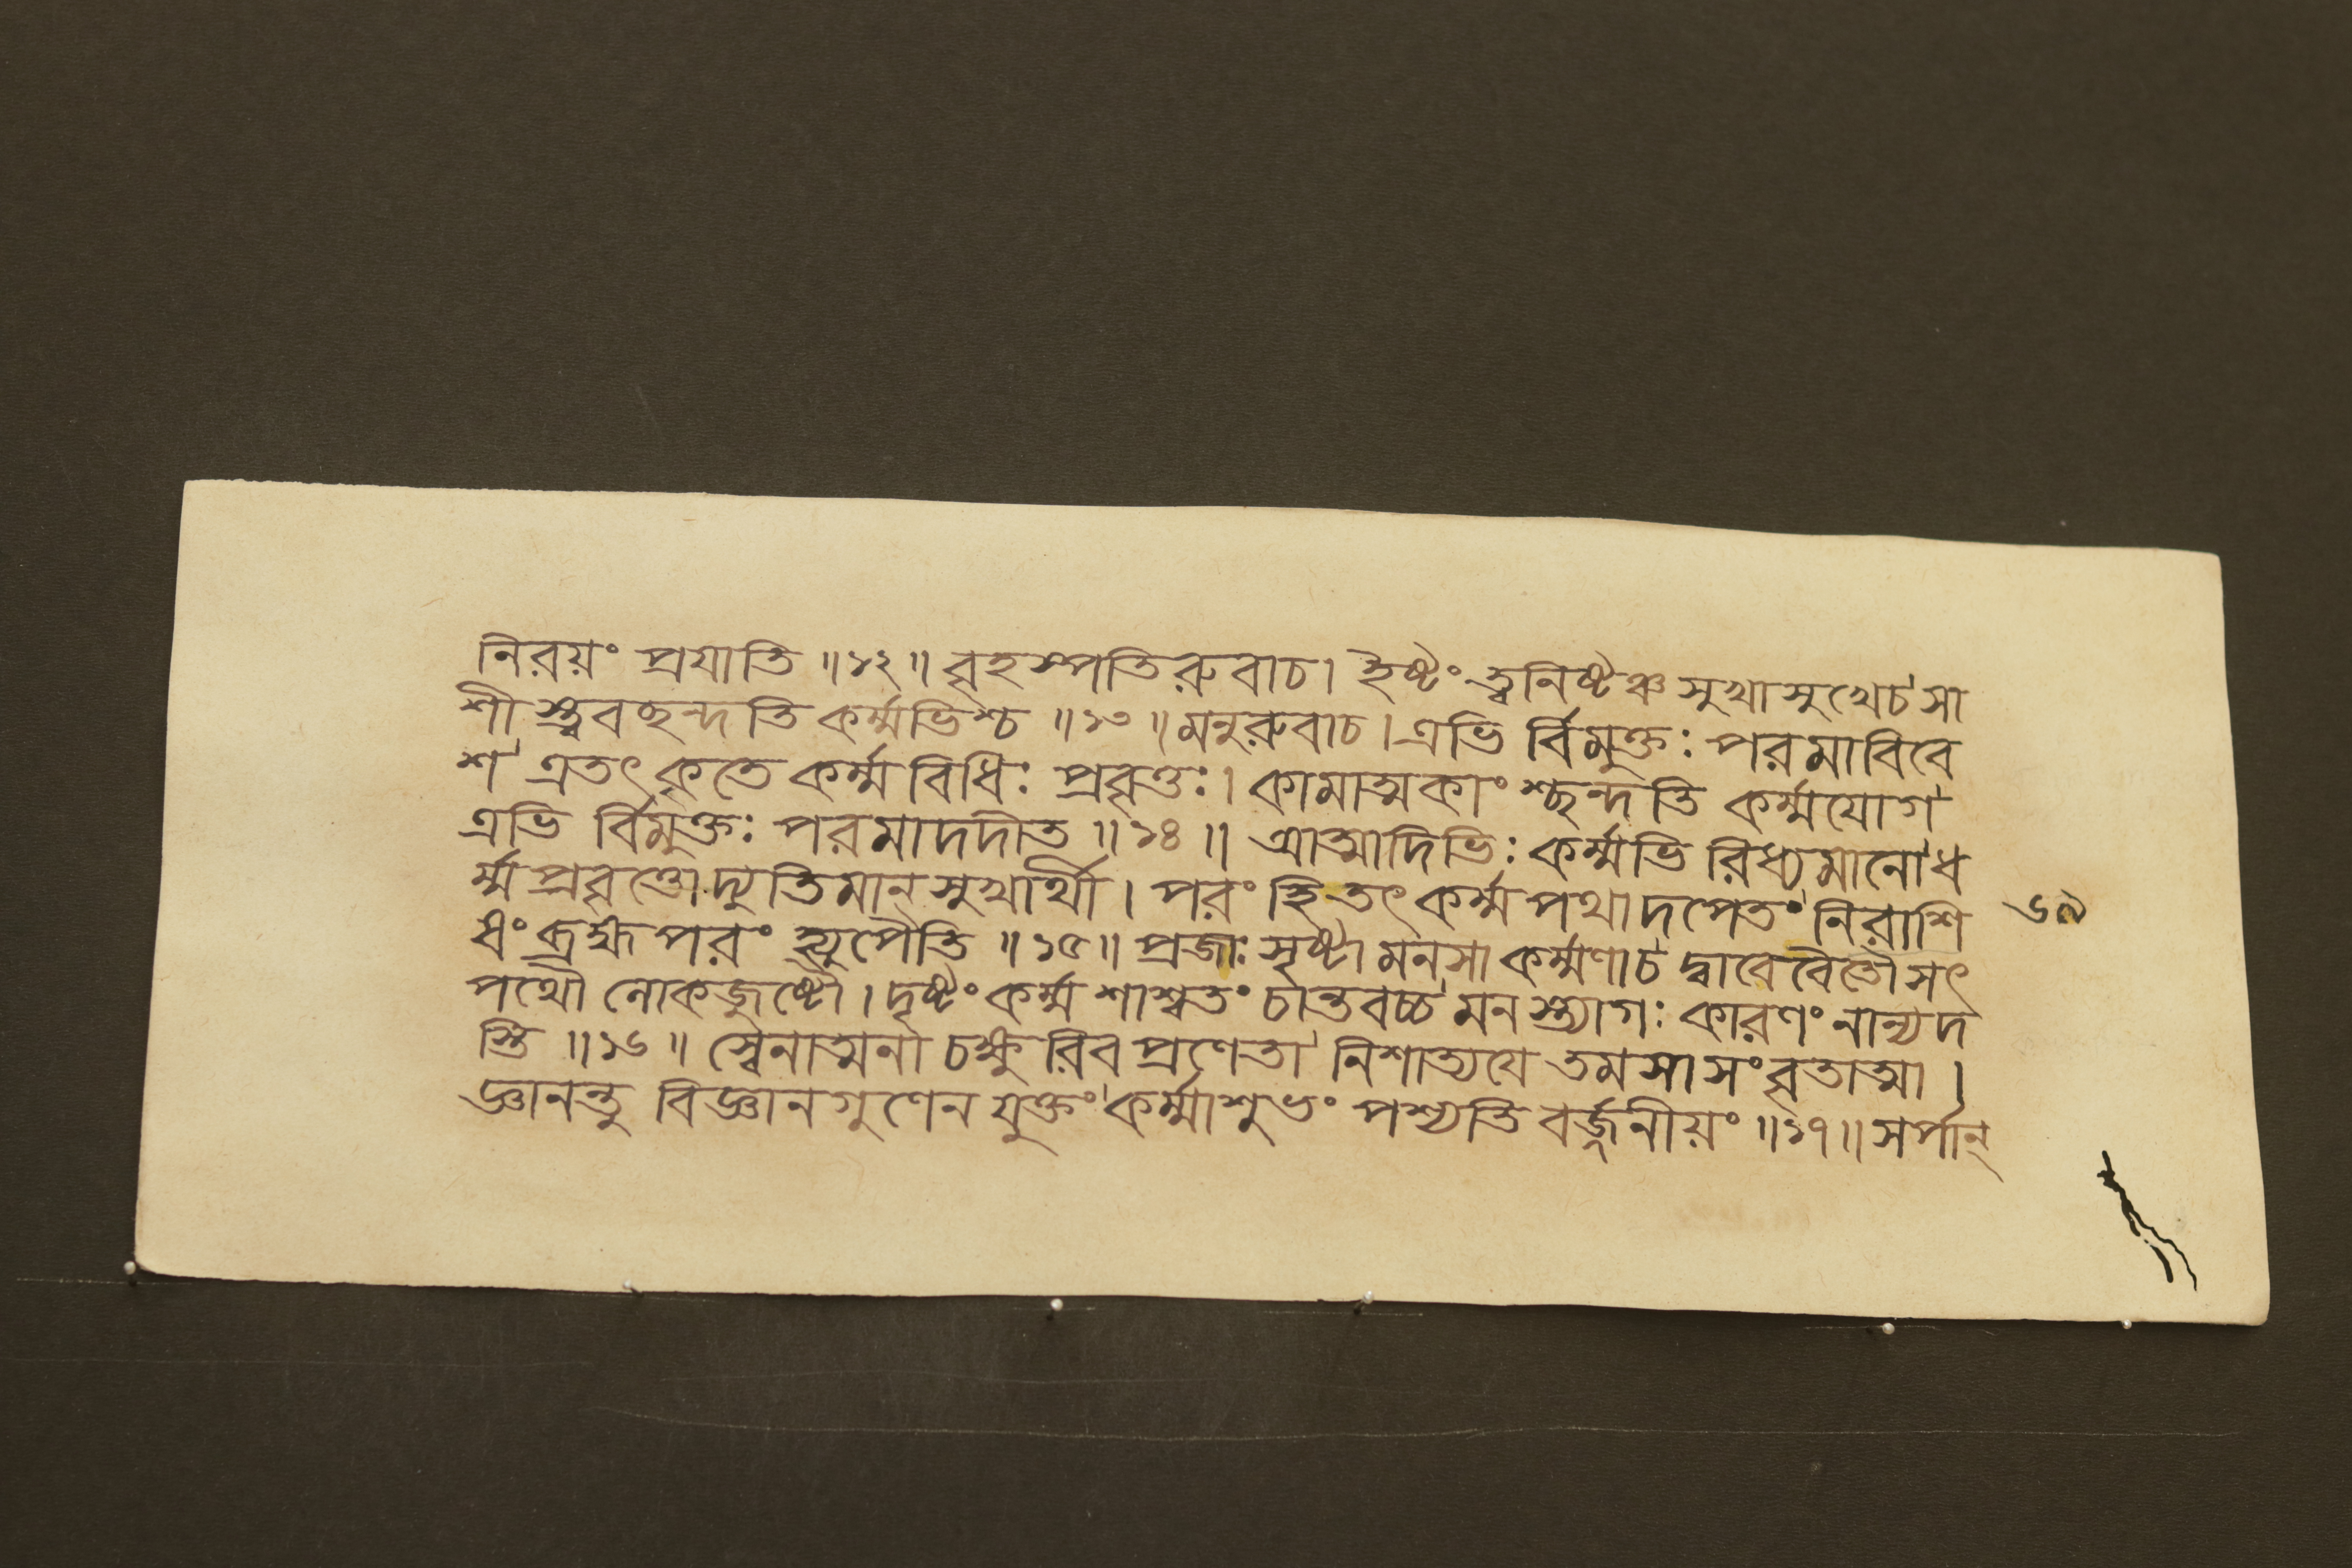 নিরয়ং প্রযাতি ॥১২॥ বৃহস্পতিরুবাচ। ইষ্টং ত্বনিষ্টঞ্চ সুখাসুখেচ সা
শীস্ত্ববছন্দতি কর্ম্মভিশ্চ ॥১৩॥ মনুরুবাচ। এভি র্বিমুক্তঃ পরমাবিবে
শ এতৎকৃতে কর্ম্মবিধিঃ প্রবৃত্তঃ। কামাত্মকাংশ্ছন্দতি কর্ম্মযোগ
এভি র্বিমুক্তঃ পরমাদদীত ॥১৪॥ আত্মাদিভিঃ কর্ম্মভিরিধ্যমানো ধ
র্ম্মপ্রবৃত্তো দ্যুতিমান্ সুখার্থী। পরং হি তৎ কর্ম্মপথাদপেতং নিরাশি
ষং ব্রহ্ম পরং হ্যুপৈতি ॥১৫॥ প্রজাঃ সৃষ্টা মনসা কর্ম্মণাচ দ্বাবেবৈতৌ সৎ
পথৌ লোকজুষ্টৌ। দৃষ্টং কর্ম্ম শাশ্বতং চান্তবচ্চ মনস্ত্যাগঃ কারণং নান্যদ
স্তি ॥১৬॥ স্বেনাত্মনা চক্ষুরিব প্রণেতা নিশাত্যয়ে তমসা সংবৃতাত্মা।
জ্ঞানন্তু বিজ্ঞানগুণেন যুক্তং কর্ম্মাশুভং পশ্যতি বর্জ্জনীয়ং ॥১৭॥ সর্পান্
৬৯